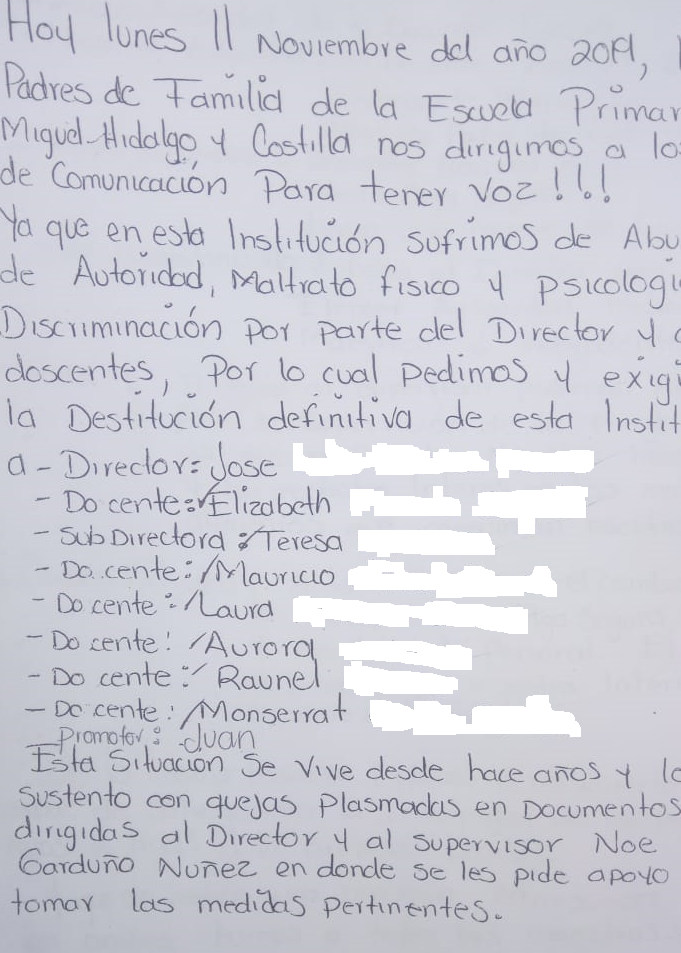 Hoy lunes 11 Noviembre del año 2019,
Padres de Familia de la Escuela Primar
Miguel Hidalgo y Costilla nos dirigimos a lo
de Comunicación Para tener voz!!!
Ya que en esta Institución sufrimos de Abu
de Autoridad, Maltrato fisico y psicologi
Discriminación por parte del Director y
doscentes, Por lo cual pedimos y exigi
la Destitución definitiva de esta Instit
a - Director: Jose
- Docente: Elizabeth
- SubDirectora: Teresa
- Docente: Mauricio
- Docente: Laura
- Docente: Aurora
- Docente: Raunel
- Docente: Monserrat
Promotor: Juan
Esta Situación Se Vive desde hace años y lo
sustento con quejas Plasmadas en Documentos
dirigidas al Director y al supervisor Noe
Garduño Nuñez en donde se les pide apoyo
tomar las medidas Pertinentes.